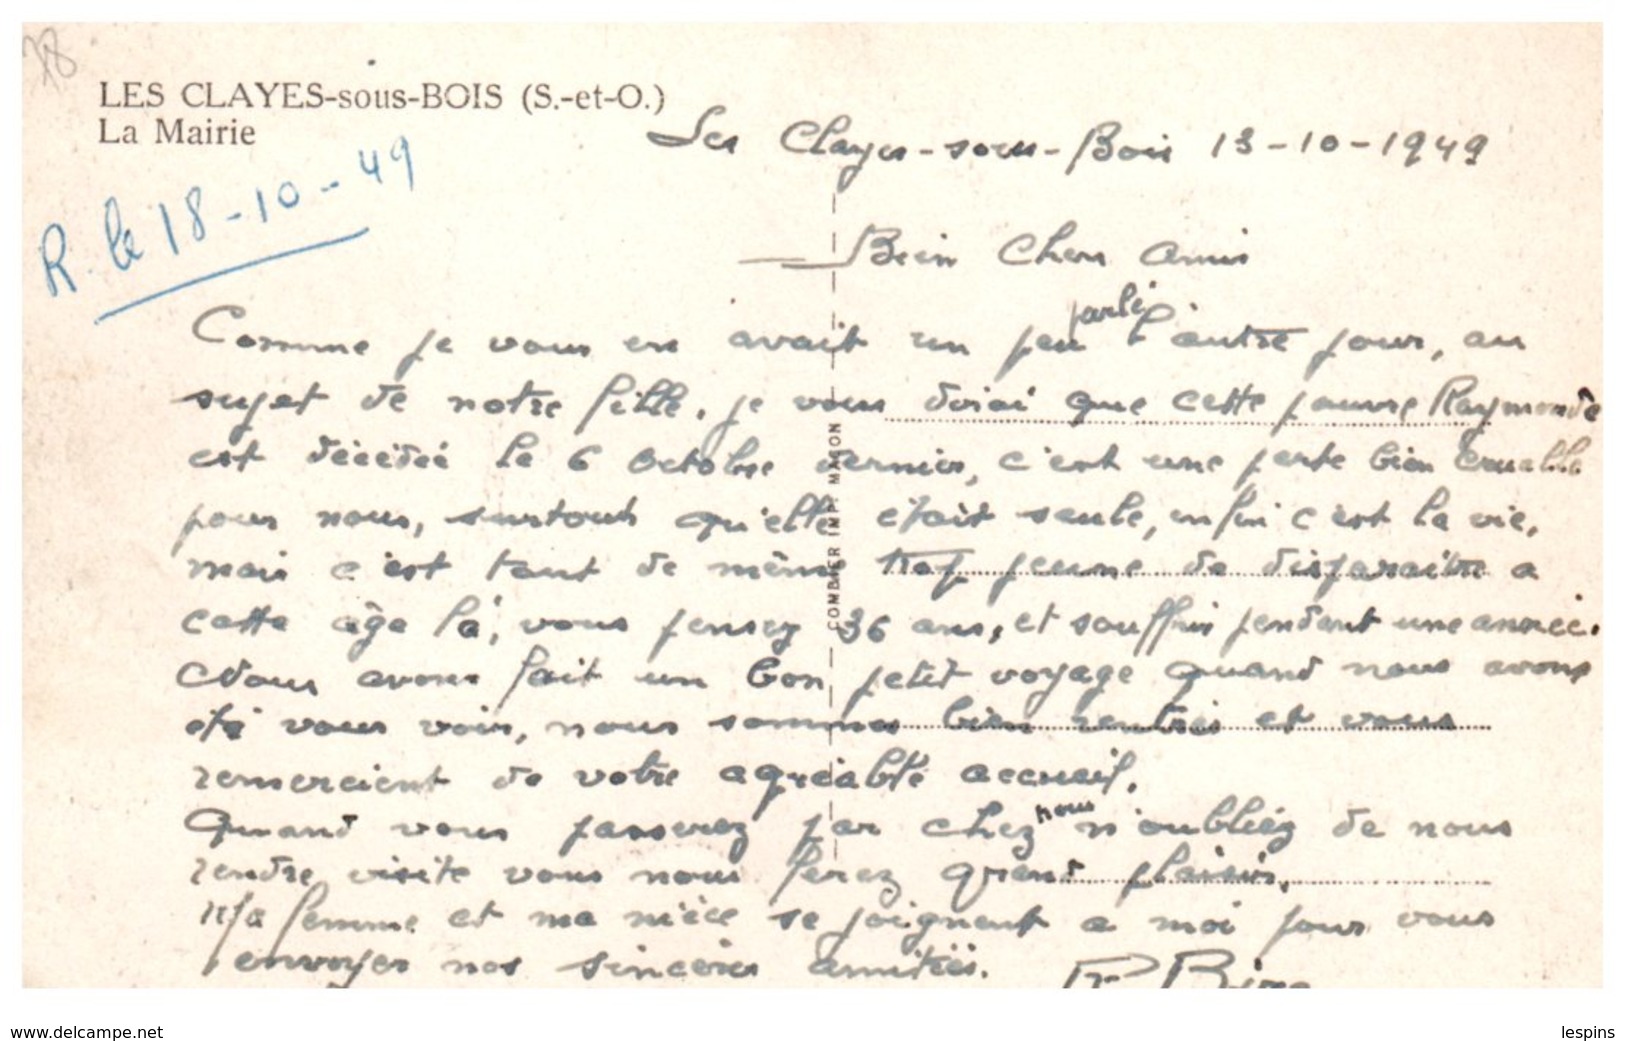 78
LES CLAYES-sous-BOIS (S.-et-O.)
La Mairie
Les Clayes-sous-Bois 13-10-1949
R. le 18-10-49
Bien Chers Amis
Comme je vous en avait un peu parlé l'autre jour, au
sujet de notre fille. je vous dirai que cette pauvre Raymonde
est décédée le 6 octobre dernier, c'est une perte bien cruelle
pour nous, surtout qu'elle était seule, enfin c'est la vie,
mais c'est tout de même trop jeune de disparaitre a
cette âge là, vous pensez 36 ans, et souffrir pendant une année.
Nous avons fait un bon petit voyage quand nous avons
été vous voir, nous sommes bien rentrés et vous
remercient de votre agréable accueil.
Quand vous passerez par chez nous n'oubliez de nous
rendre visite vous nous ferez grand plaisir.
Ma femme et ma nièce se joignent a moi pour vous
envoyer nos sincères amitiés.
COMBIER IMP. MACON
www.delcampe.net
lespins